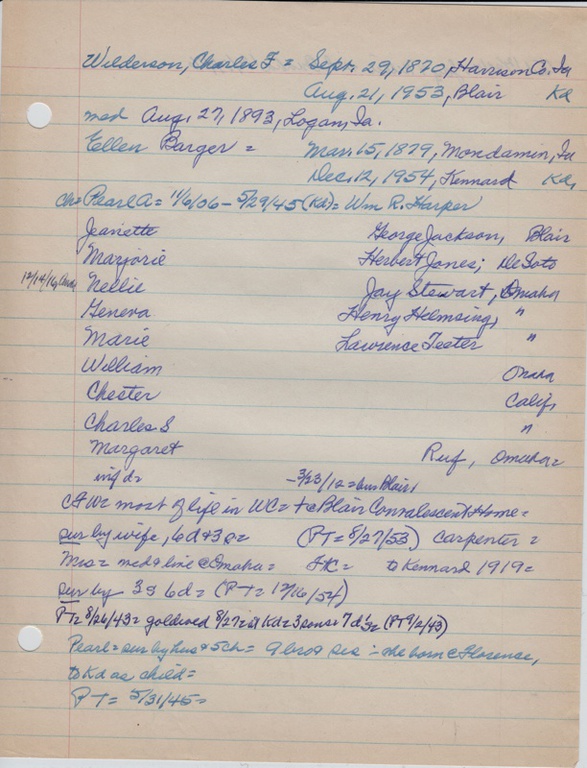 Wilderson, Charles F = Sept. 29, 1870, Harrison Co. Ia
Aug. 21, 1953, Blair Kd
med Aug. 27, 1893, Logan, Ia.
Ellen Barger = Mar. 15, 1879, Mondamin, Ia
Dec. 12, 1954, Kennard Kd,
ch= Pearl A = 11/6/06 - 5/29/45 (Kd) = Wm R. Harper
Jeanette George Jackson, Blair
Marjorie Herbert Jones; DeSoto
12/14/16, Nellie Jay Stewart, Omaha
Geneva Henry Helmsing, "
Marie Lawrence Teeter "
William Omaha
Chester Calif,
Charles S "
Margaret Ruf, Omaha=
inf d= - 3/23/12 = bur Blair,
most of life in WC = Blair Convalescent Home =
sur by wife, 6d + 3s = (PT = 8/27/53) Carpenter =
Mrs = med + live c Omaha = to Kennard 1919 =
sur by 3s 6d = (PT = 12/16/54)
PT = 8/26/43 = gold wed 8/27 = at Kd = 3 sons + 7d's = (PT 9/2/43)
Pearl = sur by hus + 5ch = 9 bros sis - she born c Florence,
to Kd as child =
PT = 5/31/45 =